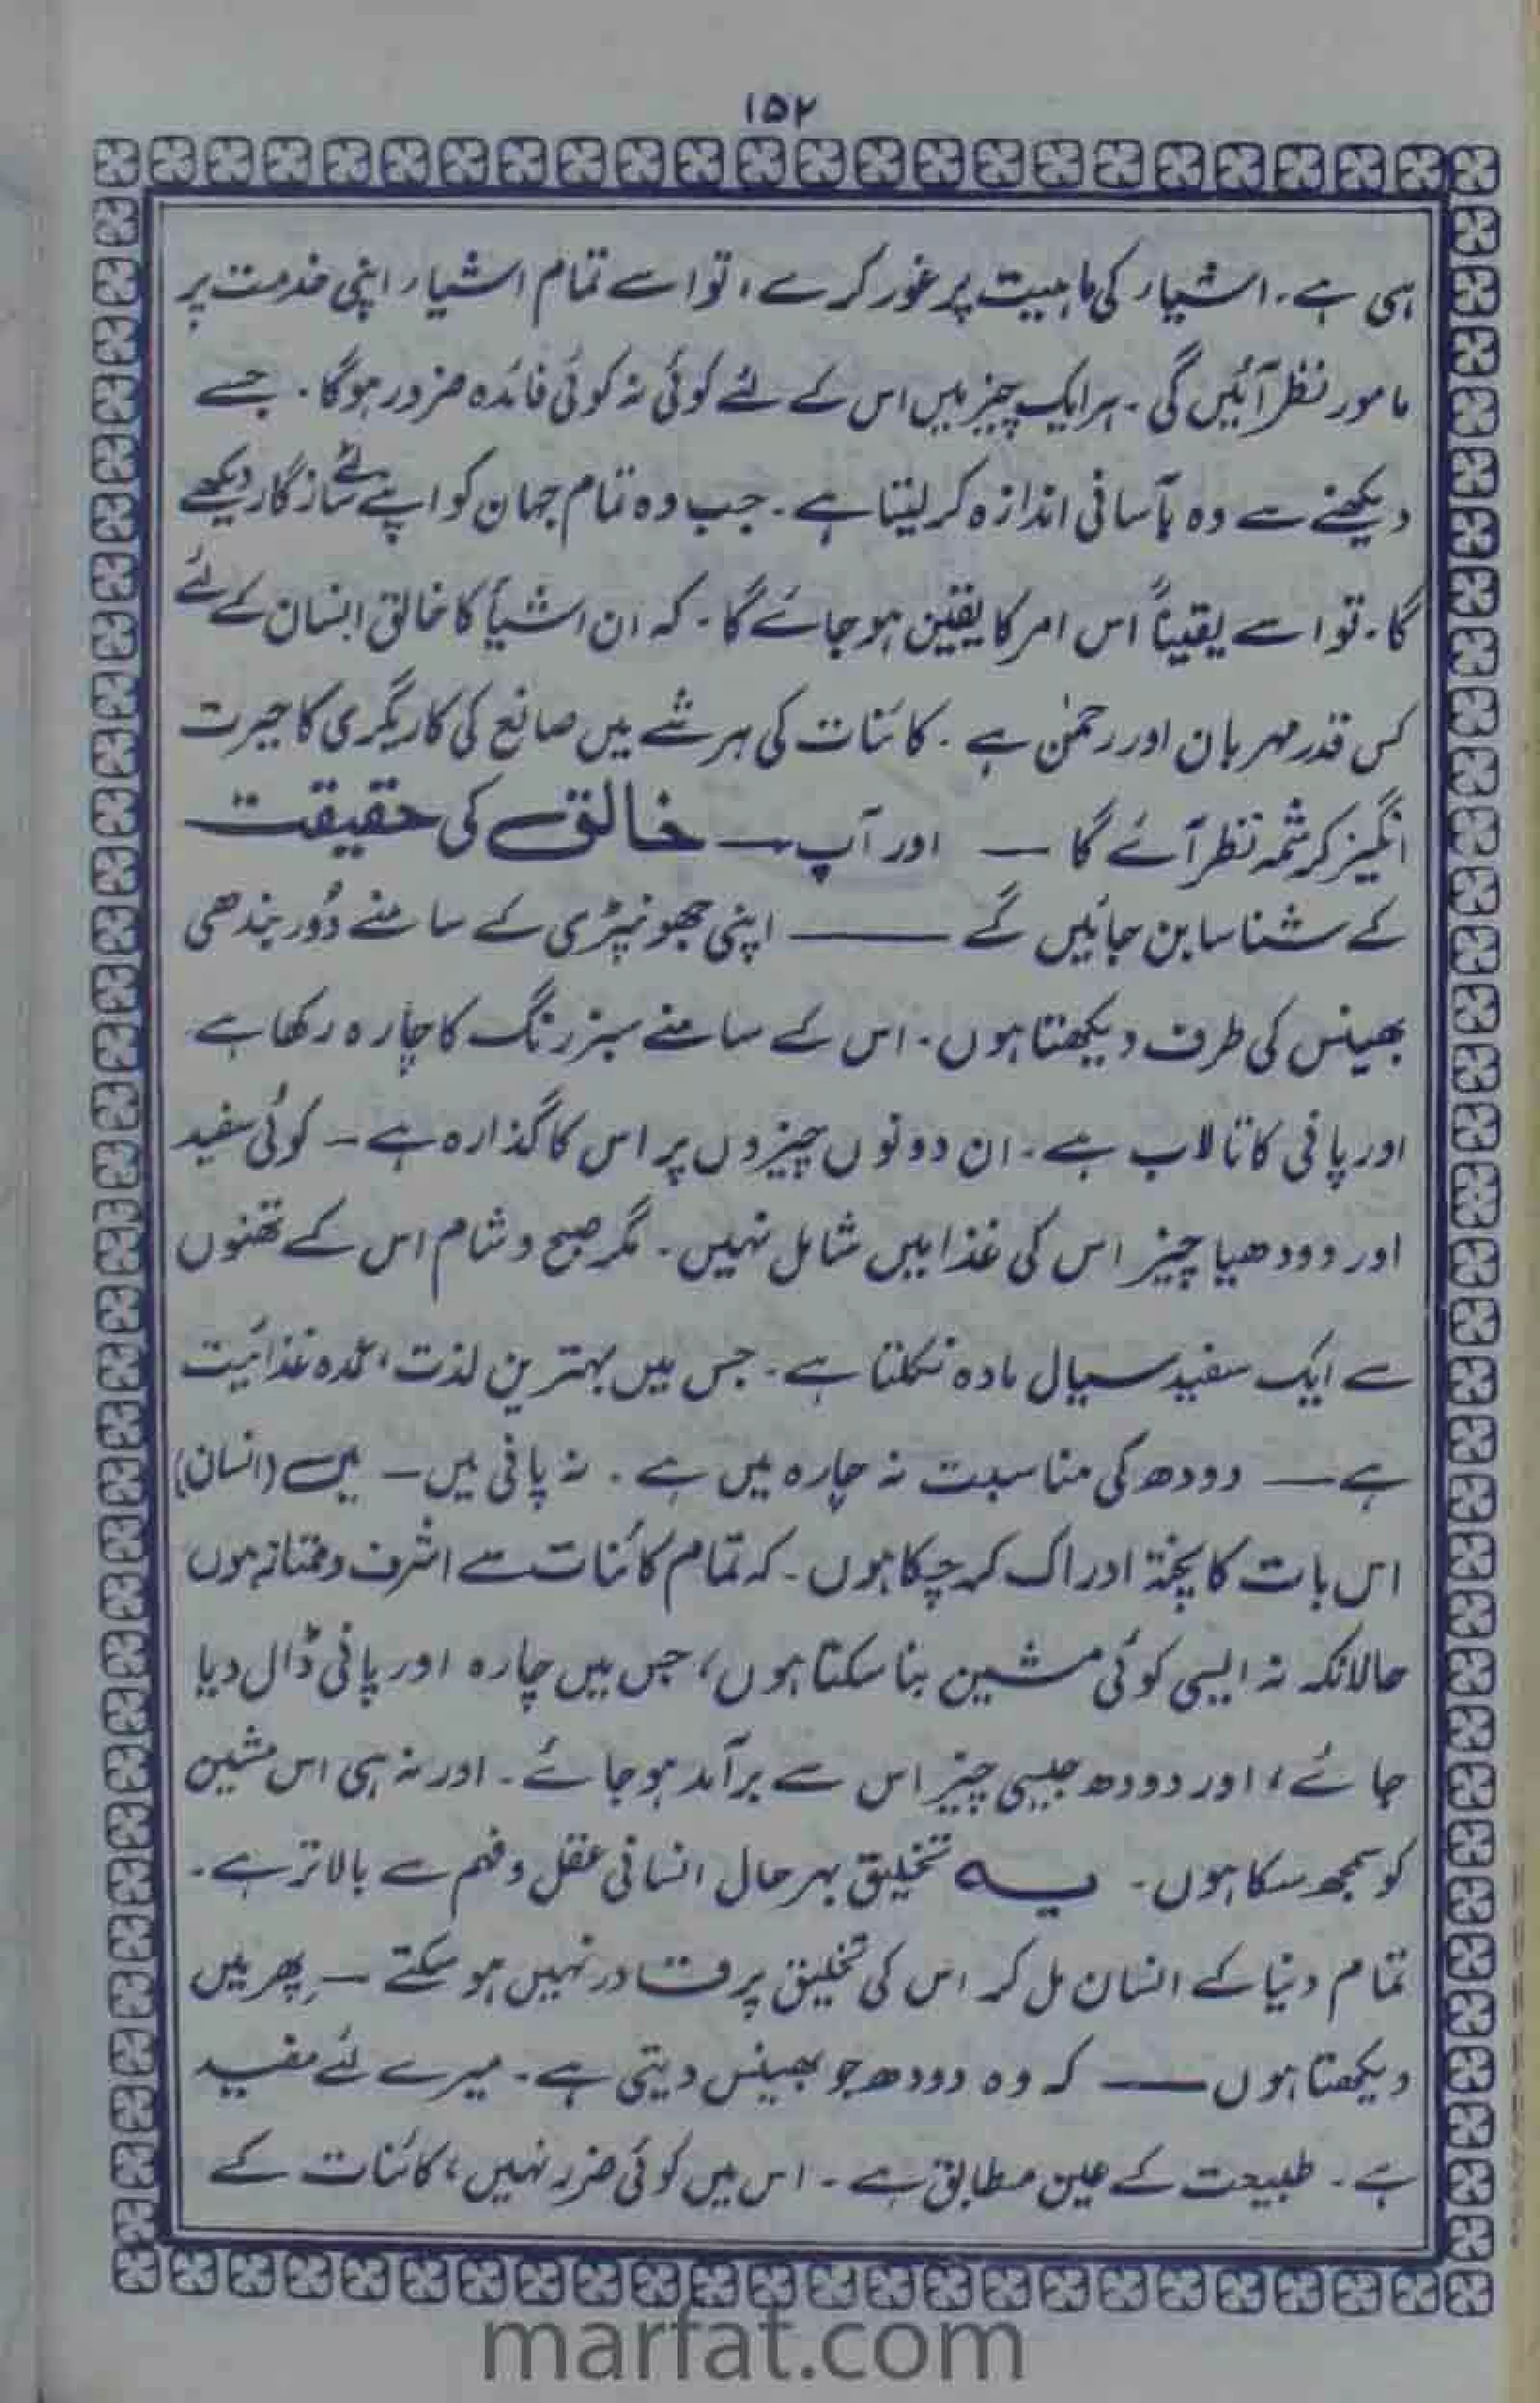 ۱۵۲
ہی ہے۔ اشیاء کی ماہیت پر غور کرے، تو اسے تمام اشیاء اپنی خدمت پر
مامور نظر آئیں گی۔ ہر ایک چیز میں اس کے لئے کوئی نہ کوئی فائدہ ضرور ہوگا۔ جسے
دیکھنے سے وہ بآسانی اندازہ کر لیتا ہے۔ جب وہ تمام جہان کو اپنے لئے سازگار دیکھے
گا۔ تو اسے یقیناً اس امر کا یقین ہو جائے گا۔ کہ ان اشیأ کا خالق انسان کے لئے
کس قدر مہربان اور رحمٰن ہے۔ کائنات کی ہر شے میں صانع کی کاریگری کا حیرت
انگیز کرشمہ نظر آئے گا — اور آپ — خالق کی حقیقت
کے شناسا بن جائیں گے —— اپنی جھونپڑی کے سامنے دُور بندھی
بھینس کی طرف دیکھتا ہوں۔ اس کے سامنے سبز رنگ کا چارہ رکھا ہے
اور پانی کا تالاب ہے۔ ان دونوں چیزوں پر اس کا گذارہ ہے — کوئی سفید
اور دودھیا چیز اس کی غذا میں شامل نہیں۔ مگر صبح و شام اس کے تھنوں
سے ایک سفید سیال مادہ نکلتا ہے۔ جس میں بہترین لذت، عمدہ غذائیت
ہے — دودھ کی مناسبت نہ چارہ میں ہے۔ نہ پانی میں — میں (انسان)
اس بات کا پختہ ادراک کر چکا ہوں۔ کہ تمام کائنات سے اشرف و ممتاز ہوں
حالانکہ نہ ایسی کوئی مشین بنا سکتا ہوں، جس میں چارہ اور پانی ڈال دیا
جائے، اور دودھ جیسی چیز اس سے برآمد ہو جائے۔ اور نہ ہی اس مشین
کو سمجھ سکا ہوں۔ یہ تخلیق بہر حال انسانی عقل و فہم سے بالاتر ہے۔
تمام دنیا کے انسان مل کر اس کی تخلیق پر قادر نہیں ہو سکتے — پھر میں
دیکھتا ہوں —— کہ وہ دودھ جو بھینس دیتی ہے۔ میرے لئے مفید
ہے۔ طبیعت کے عین مطابق ہے۔ اس میں کوئی ضرر نہیں، کائنات کے
marfat.com